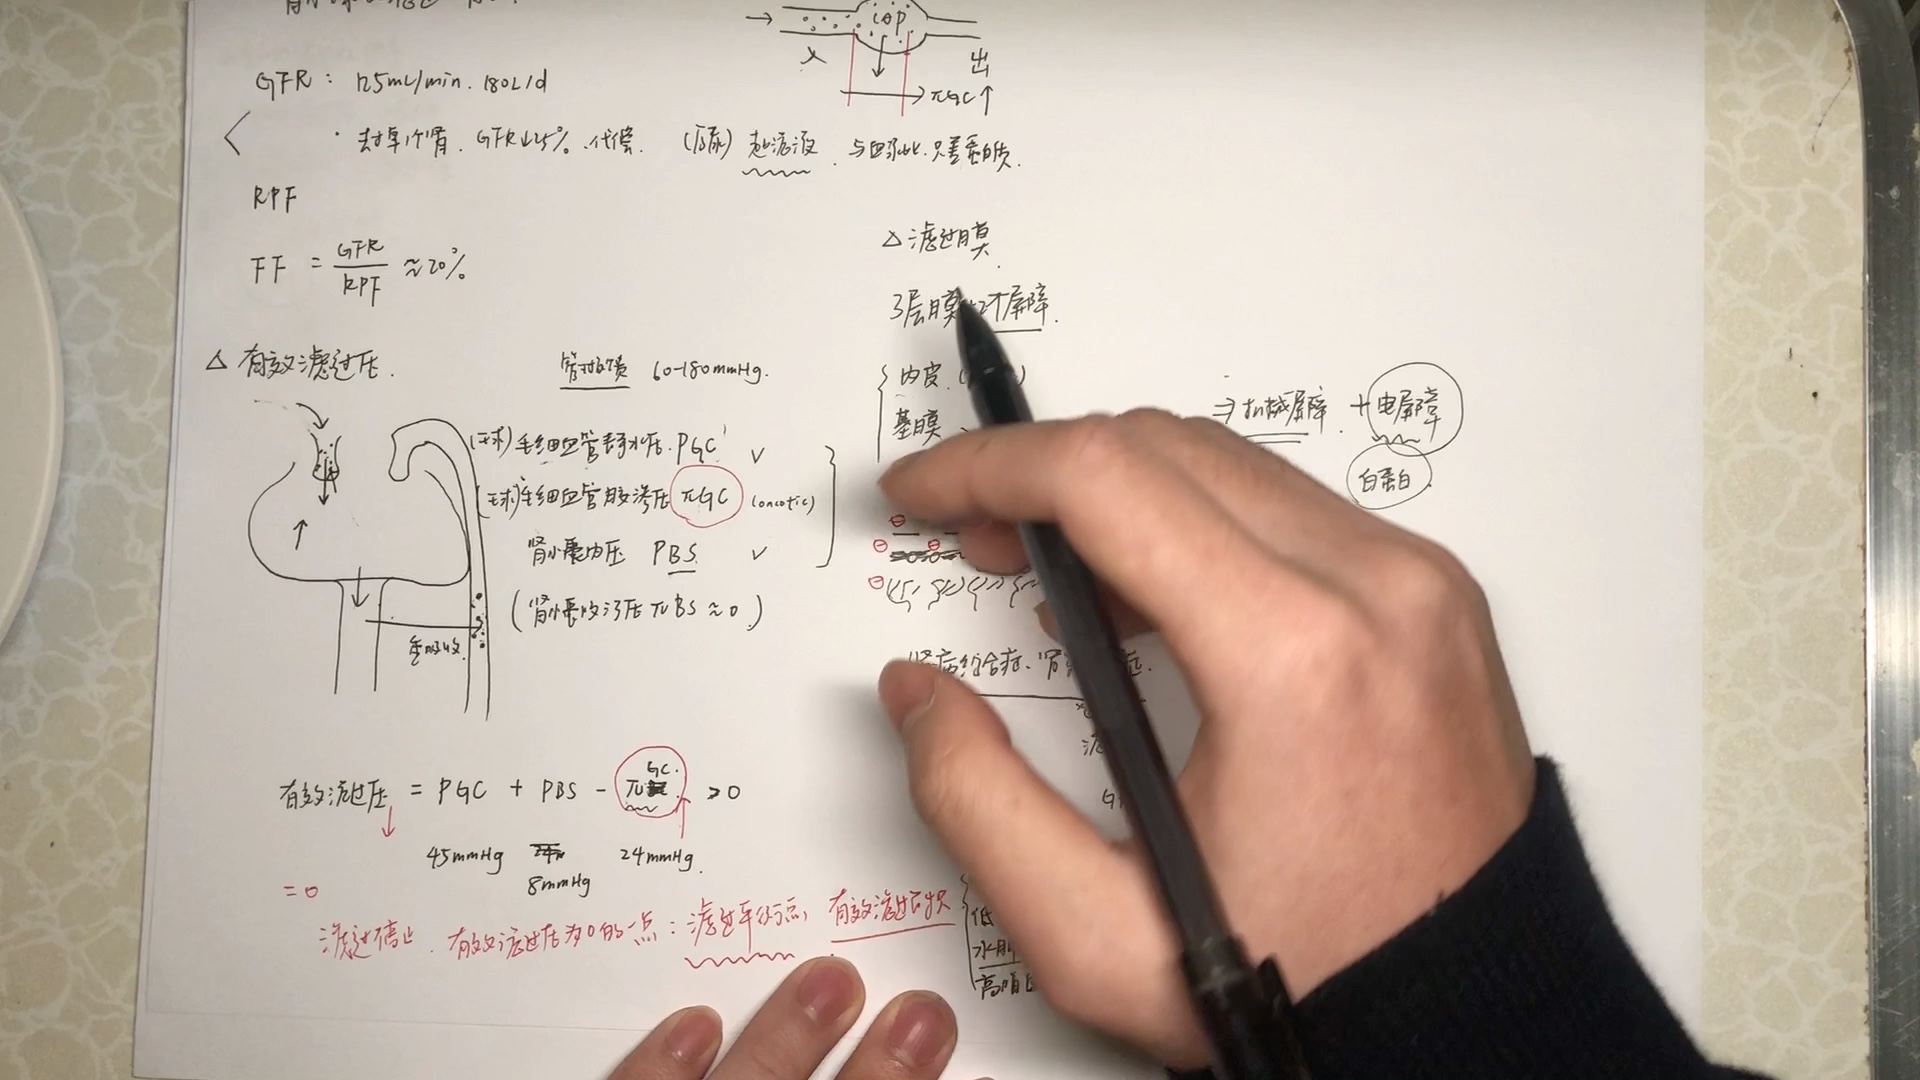 CAP
入
出
πGC↑
GFR: 125mL/min. 180L/d
· 去掉1个肾. GFR↓25%. 代偿.
(原尿) 超滤液. 与血浆比. 只差蛋白质.
RPF
FF = GFR/RPF ≈20%
△ 有效滤过压.
管球反馈 60-180mmHg.
(球)毛细血管静水压. PGC ✓
(球)毛细血管胶渗压 πGC (oncotic)
肾小囊内压 PBS ✓
(肾小囊胶渗压 πBS≈0)
重吸收
有效滤过压 = PGC + PBS - πGC. >0
45mmHg 8mmHg 24mmHg.
=0
滤过停止. 有效滤过压为0的一点: 滤过平衡点, 有效滤过面积
△ 滤过膜.
3层膜 2个屏障.
内皮.
基膜
⇒ 机械屏障 + 电屏障
白蛋白
肾病综合症、肾
滤
G
低
水肿
高脂